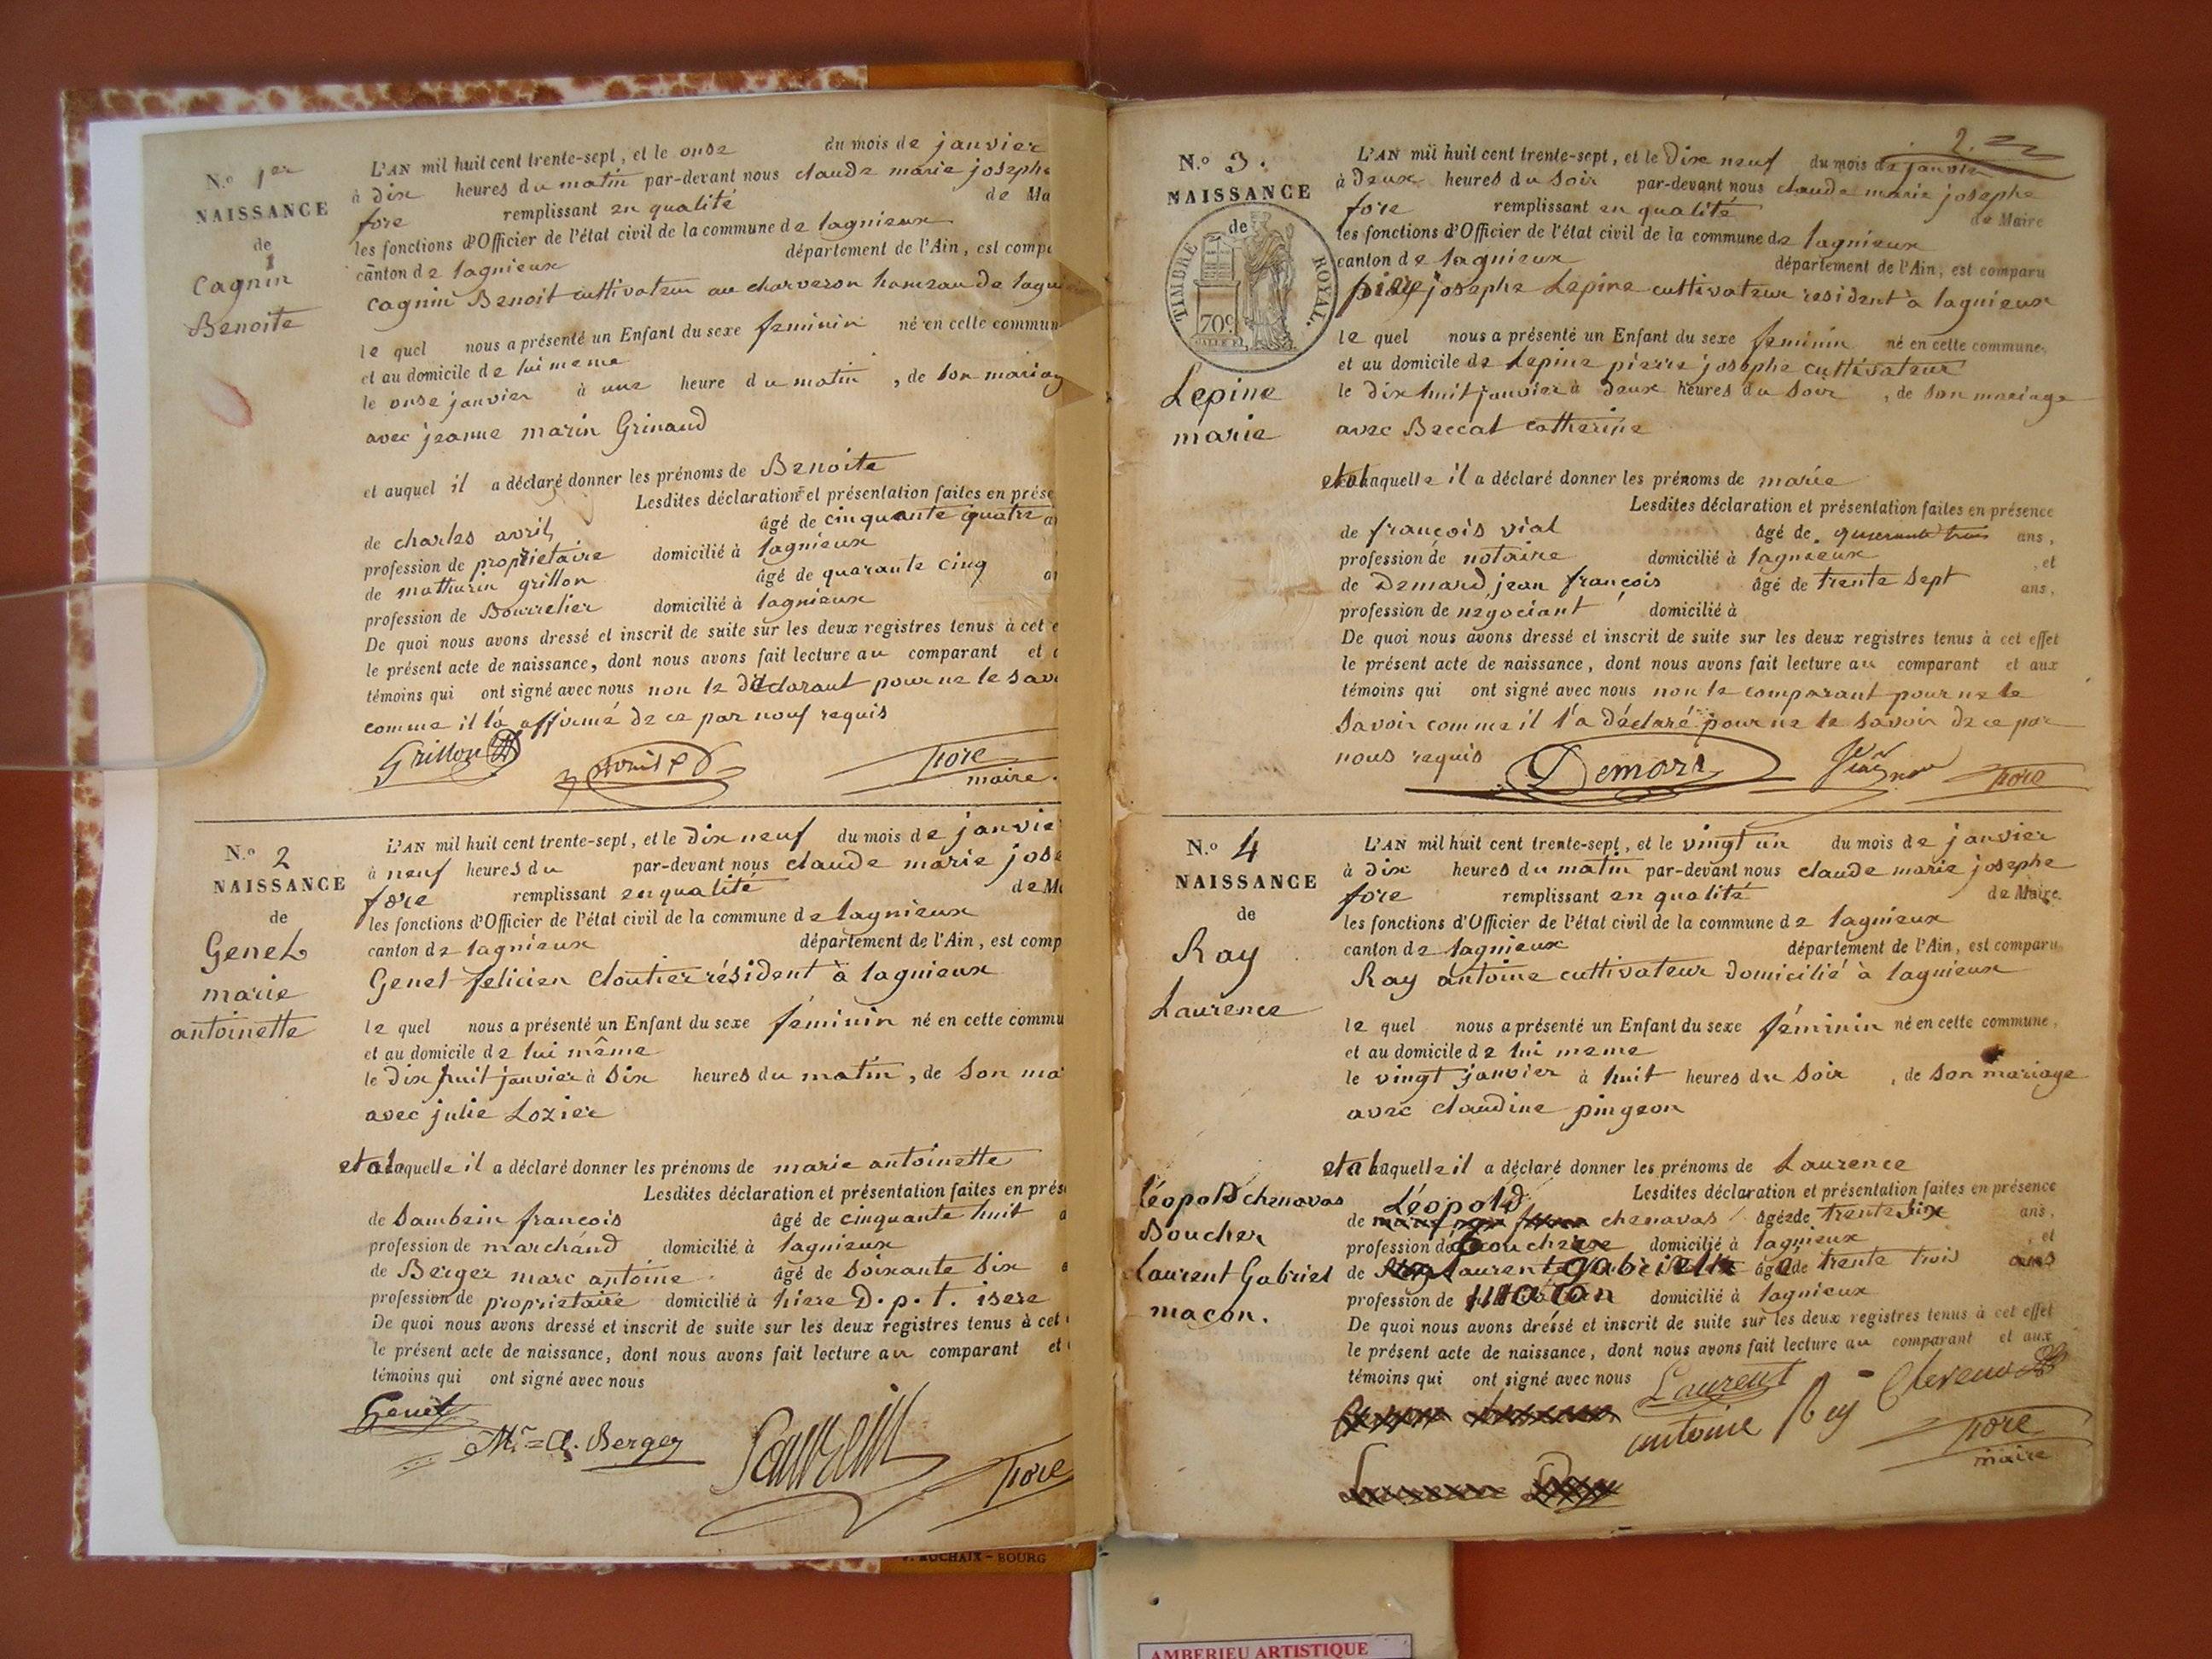 N.º 1er
NAISSANCE
de
Cagnin
Benoite
L'AN mil huit cent trente-sept, et le onze du mois de janvier
à dix heures du matin par-devant nous claude marie josephe
fore remplissant en qualité de Ma
les fonctions d'Officier de l'état civil de la commune de lagnieux
canton de lagnieux département de l'Ain, est comp
cagnin Benoit cultivateur au charveron hameau de lagn
le quel nous a présenté un Enfant du sexe feminin né en cette commun
et au domicile de lui meme
le onze janvier à une heure du matin, de son mariag
avec jeanne marin Grinaud
et auquel il a déclaré donner les prénoms de Benoite
Lesdites déclaration et présentation faites en prése
de charles avril âgé de cinquante quatre a
profession de propriétaire domicilié à lagnieux
de mathurin grillon âgé de quarante cinq a
profession de Bourrelier domicilié à lagnieux
De quoi nous avons dressé et inscrit de suite sur les deux registres tenus à cet e
le présent acte de naissance, dont nous avons fait lecture au comparant et
témoins qui ont signé avec nous non le déclarant pour ne le savo
comme il l'a affirmé de ce par nous requis
Grillon avril fore
maire.
N.º 2
NAISSANCE
de
Genet
marie
antoinette
L'AN mil huit cent trente-sept, et le dix neuf du mois de janvie
à neuf heures du par-devant nous claude marie jose
fore remplissant en qualité de Ma
les fonctions d'Officier de l'état civil de la commune de lagnieux
canton de lagnieux département de l'Ain, est comp
Genet felicien Cloutier résident à lagnieux
le quel nous a présenté un Enfant du sexe féminin né en cette commu
et au domicile de lui même
le dix huit janvier à six heures du matin, de son ma
avec julie Lozier
et a laquelle il a déclaré donner les prénoms de marie antoinette
Lesdites déclaration et présentation faites en prése
de Sambein françois âgé de cinquante huit a
profession de marchand domicilié à lagnieux
de Berger marc antoine âgé de soixante six
profession de propriétaire domicilié à hiere D.p.t. isere
De quoi nous avons dressé et inscrit de suite sur les deux registres tenus à cet
le présent acte de naissance, dont nous avons fait lecture au comparant et
témoins qui ont signé avec nous
Genet
Mr = A. Berger fore
2
N.º 3.
NAISSANCE
de
TIMBRE ROYAL.
70c
Lepine
marie
L'AN mil huit cent trente-sept, et le Dix neuf du mois de janvier
à deux heures du soir par-devant nous claude marie josephe
fore remplissant en qualité de Maire
les fonctions d'Officier de l'état civil de la commune de lagnieux
canton de lagnieux département de l'Ain, est comparu
josephe Lepine cultivateur résident à lagnieux
le quel nous a présenté un Enfant du sexe féminin né en cette commune,
et au domicile de Lepine pierre josephe cultivateur
le dix huit janvier à deux heures du soir, de son mariage
avec Beccat catherine
et a laquelle il a déclaré donner les prénoms de marie
Lesdites déclaration et présentation faites en présence
de françois vial âgé de quarante trois ans,
profession de notaire domicilié à lagnieux, et
de Demard, jean françois âgé de trente sept ans,
profession de négociant domicilié à
De quoi nous avons dressé et inscrit de suite sur les deux registres tenus à cet effet
le présent acte de naissance, dont nous avons fait lecture au comparant et aux
témoins qui ont signé avec nous non le comparant pour ne le
savoir comme il l'a déclaré pour ne le savoir de ce par
nous requis Demard fore
N.º 4
NAISSANCE
de
Ray
Laurence
L'AN mil huit cent trente-sept, et le vingt un du mois de janvier
à dix heures du matin par-devant nous claude marie josephe
fore remplissant en qualité de Maire
les fonctions d'Officier de l'état civil de la commune de lagnieux
canton de lagnieux département de l'Ain, est comparu
Ray antoine cultivateur domicilié à lagnieux
le quel nous a présenté un Enfant du sexe féminin né en cette commune,
et au domicile de lui meme
le vingt janvier à huit heures du soir, de son mariage
avec claudine pingeon
et a laquelle il a déclaré donner les prénoms de Laurence
Léopold chenavas
Boucher
Laurent Gabriel
maçon.
Lesdites déclaration et présentation faites en présence
de Léopold chenavas âgé de trente six ans,
profession de Boucher domicilié à lagnieux, et
de Laurent gabriel âgé de trente trois ans
profession de maçon domicilié à lagnieux
De quoi nous avons dressé et inscrit de suite sur les deux registres tenus à cet effet
le présent acte de naissance, dont nous avons fait lecture au comparant et aux
témoins qui ont signé avec nous Laurent
antoine Rey fore
maire
RUCHAIX - BOURG
AMBERIEU ARTISTIQUE